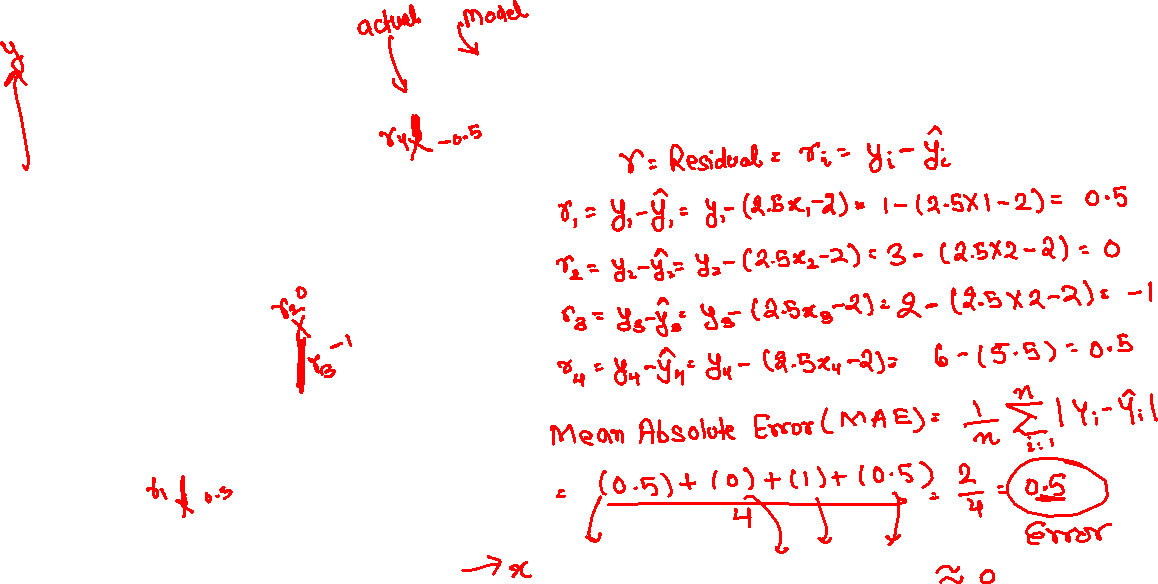 actual Model
y
r4 -0.5
r = Residual = ri = yi - ŷi
r1 = y1 - ŷ1 = y1 - (2.5x1 - 2) = 1 - (2.5X1 - 2) = 0.5
r2 = y2 - ŷ2 = y2 - (2.5x2 - 2) = 3 - (2.5X2 - 2) = 0
r2 0
r3 = y3 - ŷ3 = y3 - (2.5x3 - 2) = 2 - (2.5X2 - 2) = -1
r3 -1
r4 = y4 - ŷ4 = y4 - (2.5x4 - 2) = 6 - (5.5) = 0.5
Mean Absolute Error (MAE) = 1/n n∑i=1 |Yi - Ŷi|
r1 0.5
= (0.5) + (0) + (1) + (0.5) / 4 = 2/4 = 0.5
Error
→ x
≈ 0